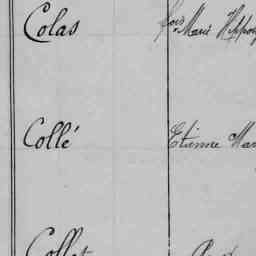 Colas fois Marie Hippoly
Collé Etienne Mar
Collet